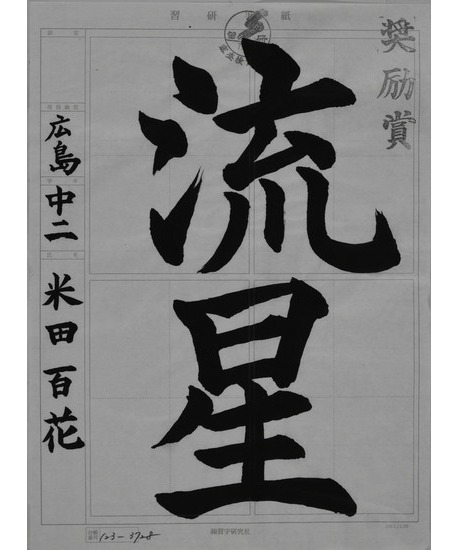 奨励賞
流星
広島 中二 米田百花
習字研究社
123-3728